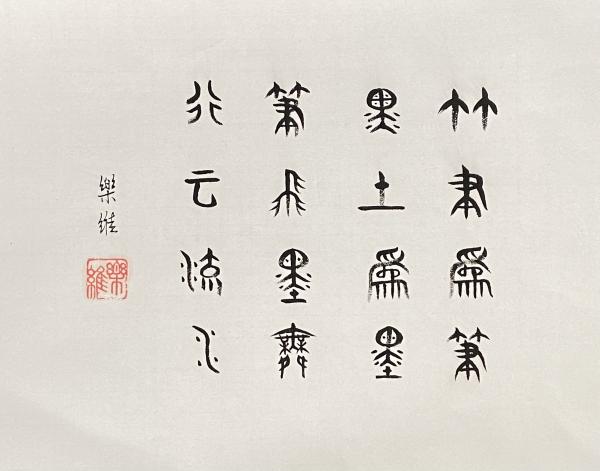 竹聿爲筆
黑土爲墨
筆飛墨舞
行云流水
樂維
樂維